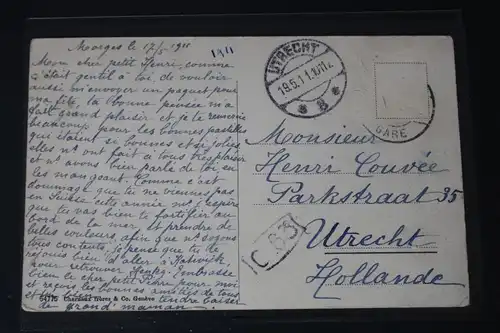 Morges le 17/5 1911
1911
Mon cher petit Henri, comme
c'était gentil à toi de vouloir
aussi m'envoyer un paquet pour
ma fête, ta bonne pensée m'a
fait grand plaisir et je te remercie
beaucoup pour les bonnes pastilles
qui étaient si bonnes et si jolies
elles m'ont fait à tous très plaisir
et n. avons bien parlé de toi en
les mangeant. Comme c'est
dommage que tu ne viennes pas
en Suisse cette année mais j'espère
que tu vas bien te fortifier au
bord de la mer, et prendre de
belles couleurs, afin que n. soyons
tous contents. Je pense que tu te
réjouis bien d'aller à Katwijk
pour retrouver Embrasse
bien le cher petit Pierre pour moi
et reçois les bonnes amitiés de tous
et un bien tendre baiser
de grand' maman.
6476 Charnaux frères & Co. Genève
UTRECHT
19.5.11.
8
GARE
Monsieur
Henri Couvée
Parkstraat 35
Utrecht
Hollande
C 63